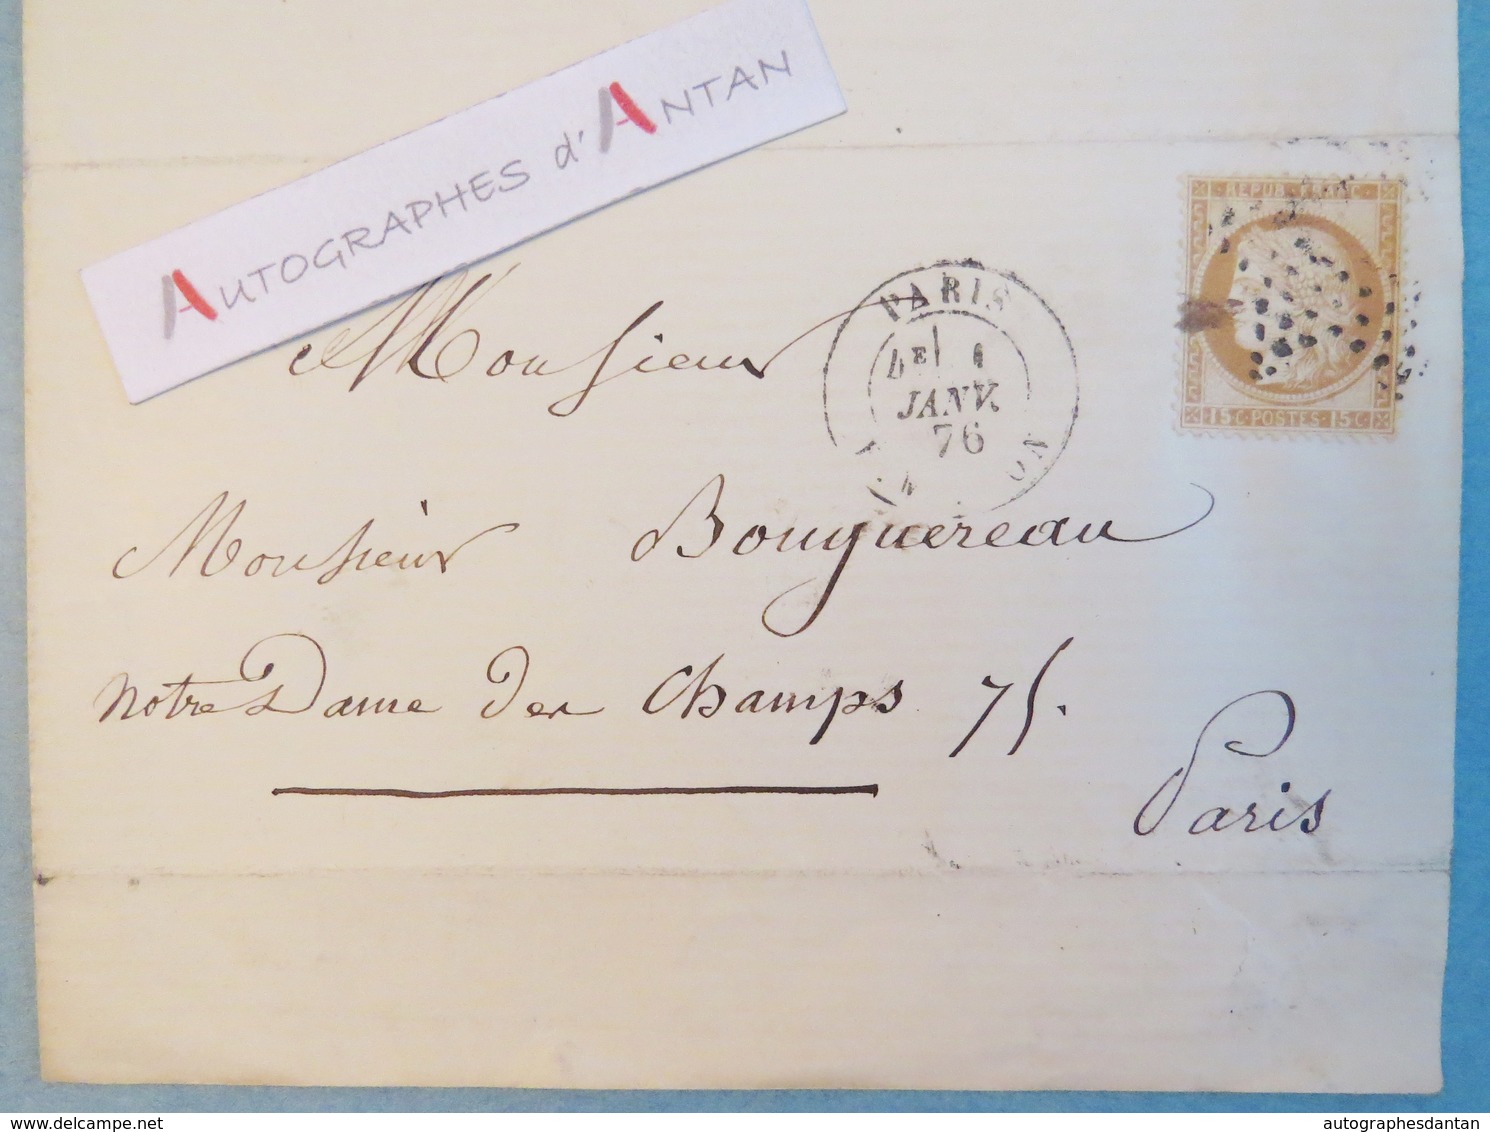 AUTOGRAPHES d'ANTAN
REPUB. FRANC.
15 C. POSTES 15 C.
PARIS
4E 1
JANV.
76
Monsieur
Monsieur Bouguereau
Notre Dame des Champs 75.
Paris
www.delcampe.net
autographesdantan